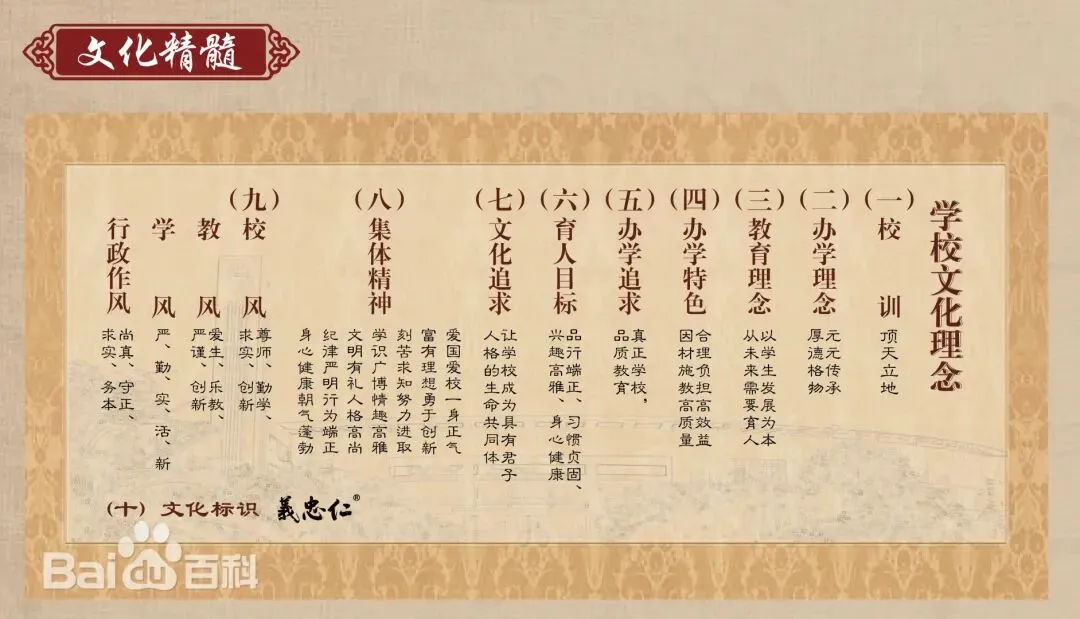 文化精髓
学校文化理念
（一）校训
顶天立地
（二）办学理念
元元传承
厚德格物
（三）教育理念
以学生发展为本
从未来需要育人
（四）办学特色
合理负担高效益
因材施教高质量
（五）办学追求
真正学校，
品质教育
（六）育人目标
品行端正、习惯贞固、
兴趣高雅、身心健康
（七）文化追求
让学校成为具有君子
人格的生命共同体
（八）集体精神
爱国爱校一身正气
富有理想勇于创新
刻苦求知努力进取
学识广博情趣高雅
文明有礼人格高尚
纪律严明行为端正
身心健康朝气蓬勃
（九）校风
尊师、勤学、
求实、创新
教风
爱生、乐教、
严谨、创新
学风
严、勤、实、活、新
行政作风
尚真、守正、
求实、务本
（十）文化标识 義忠仁®
Bai百科